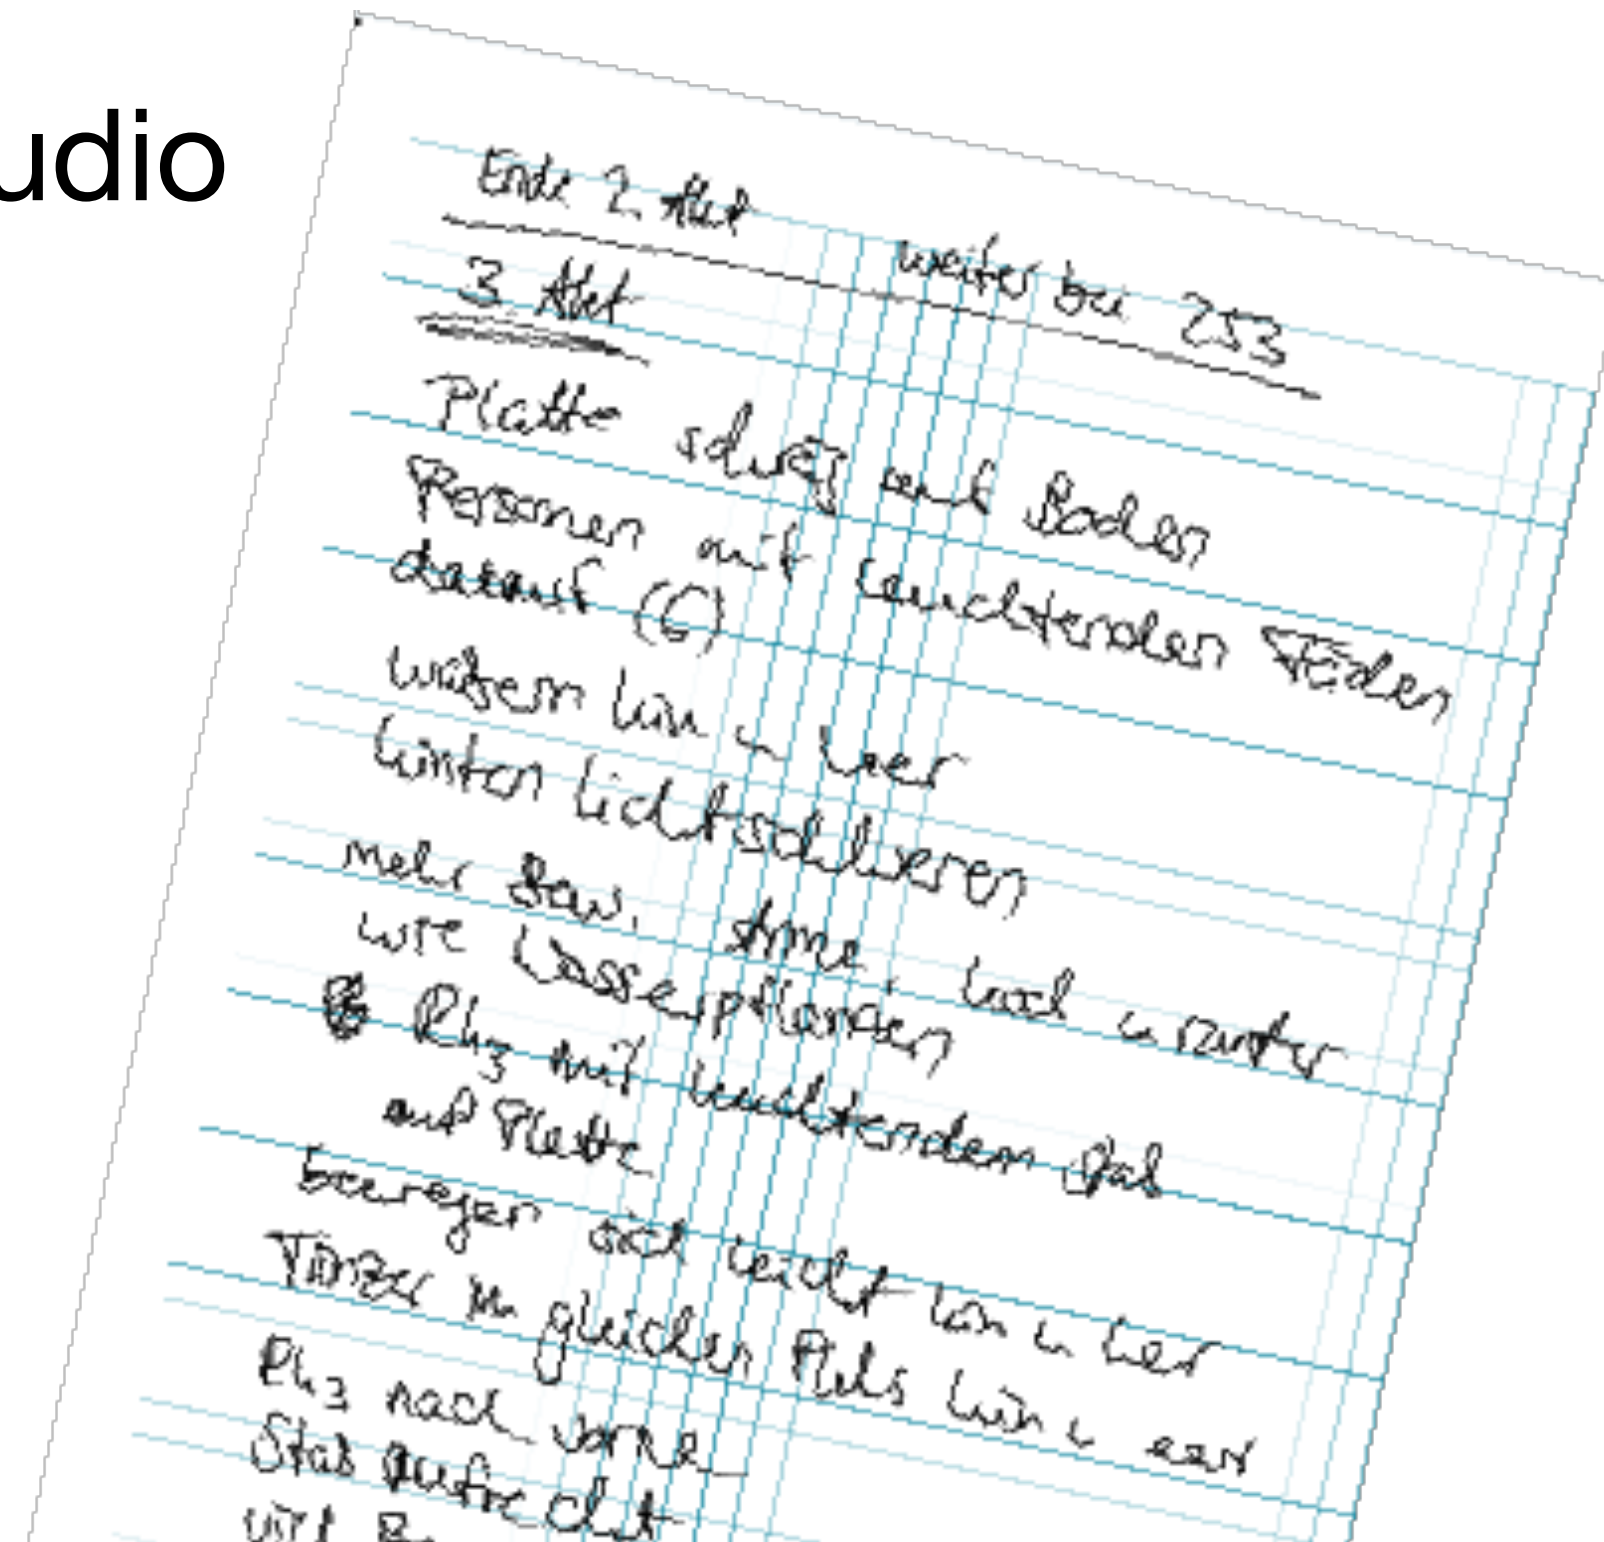 udio
Ende 2. Akt weiter bei 253
3. Akt
Platte schräg auf Boden
Personen mit leuchtenden Fäden
darauf (6)
hin u her
hinten Lichtschlieren
mehr Bew. Arme. hoch u runter
wie Wasserpflanzen
Rh3 mit leuchtendem Stab
auf Platte
bewegen sich leicht hin u her
Tänzer im gleichen Puls hin u her
Rh3 nach vorne
Stab aufrecht